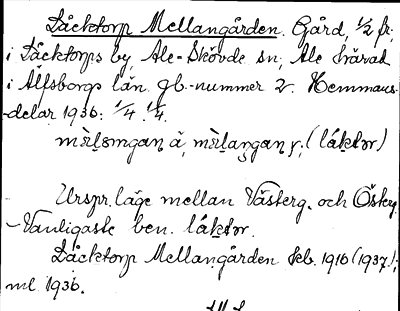 Låcktorp Mellangården. Gård, 1/2 fr.
i Låcktorps by Ale-Skövde sn, Ale härad
i Älfsborgs län. Jb.-nummer 2. Hemmans-
-delar 1936: 1/4. 1/4.
Urspr. läge mellan Västerg. och Österg.
- Vanligaste ben. låktər.
Låcktorp Mellangården Jeb. 1916 (1937);
ml. 1936.